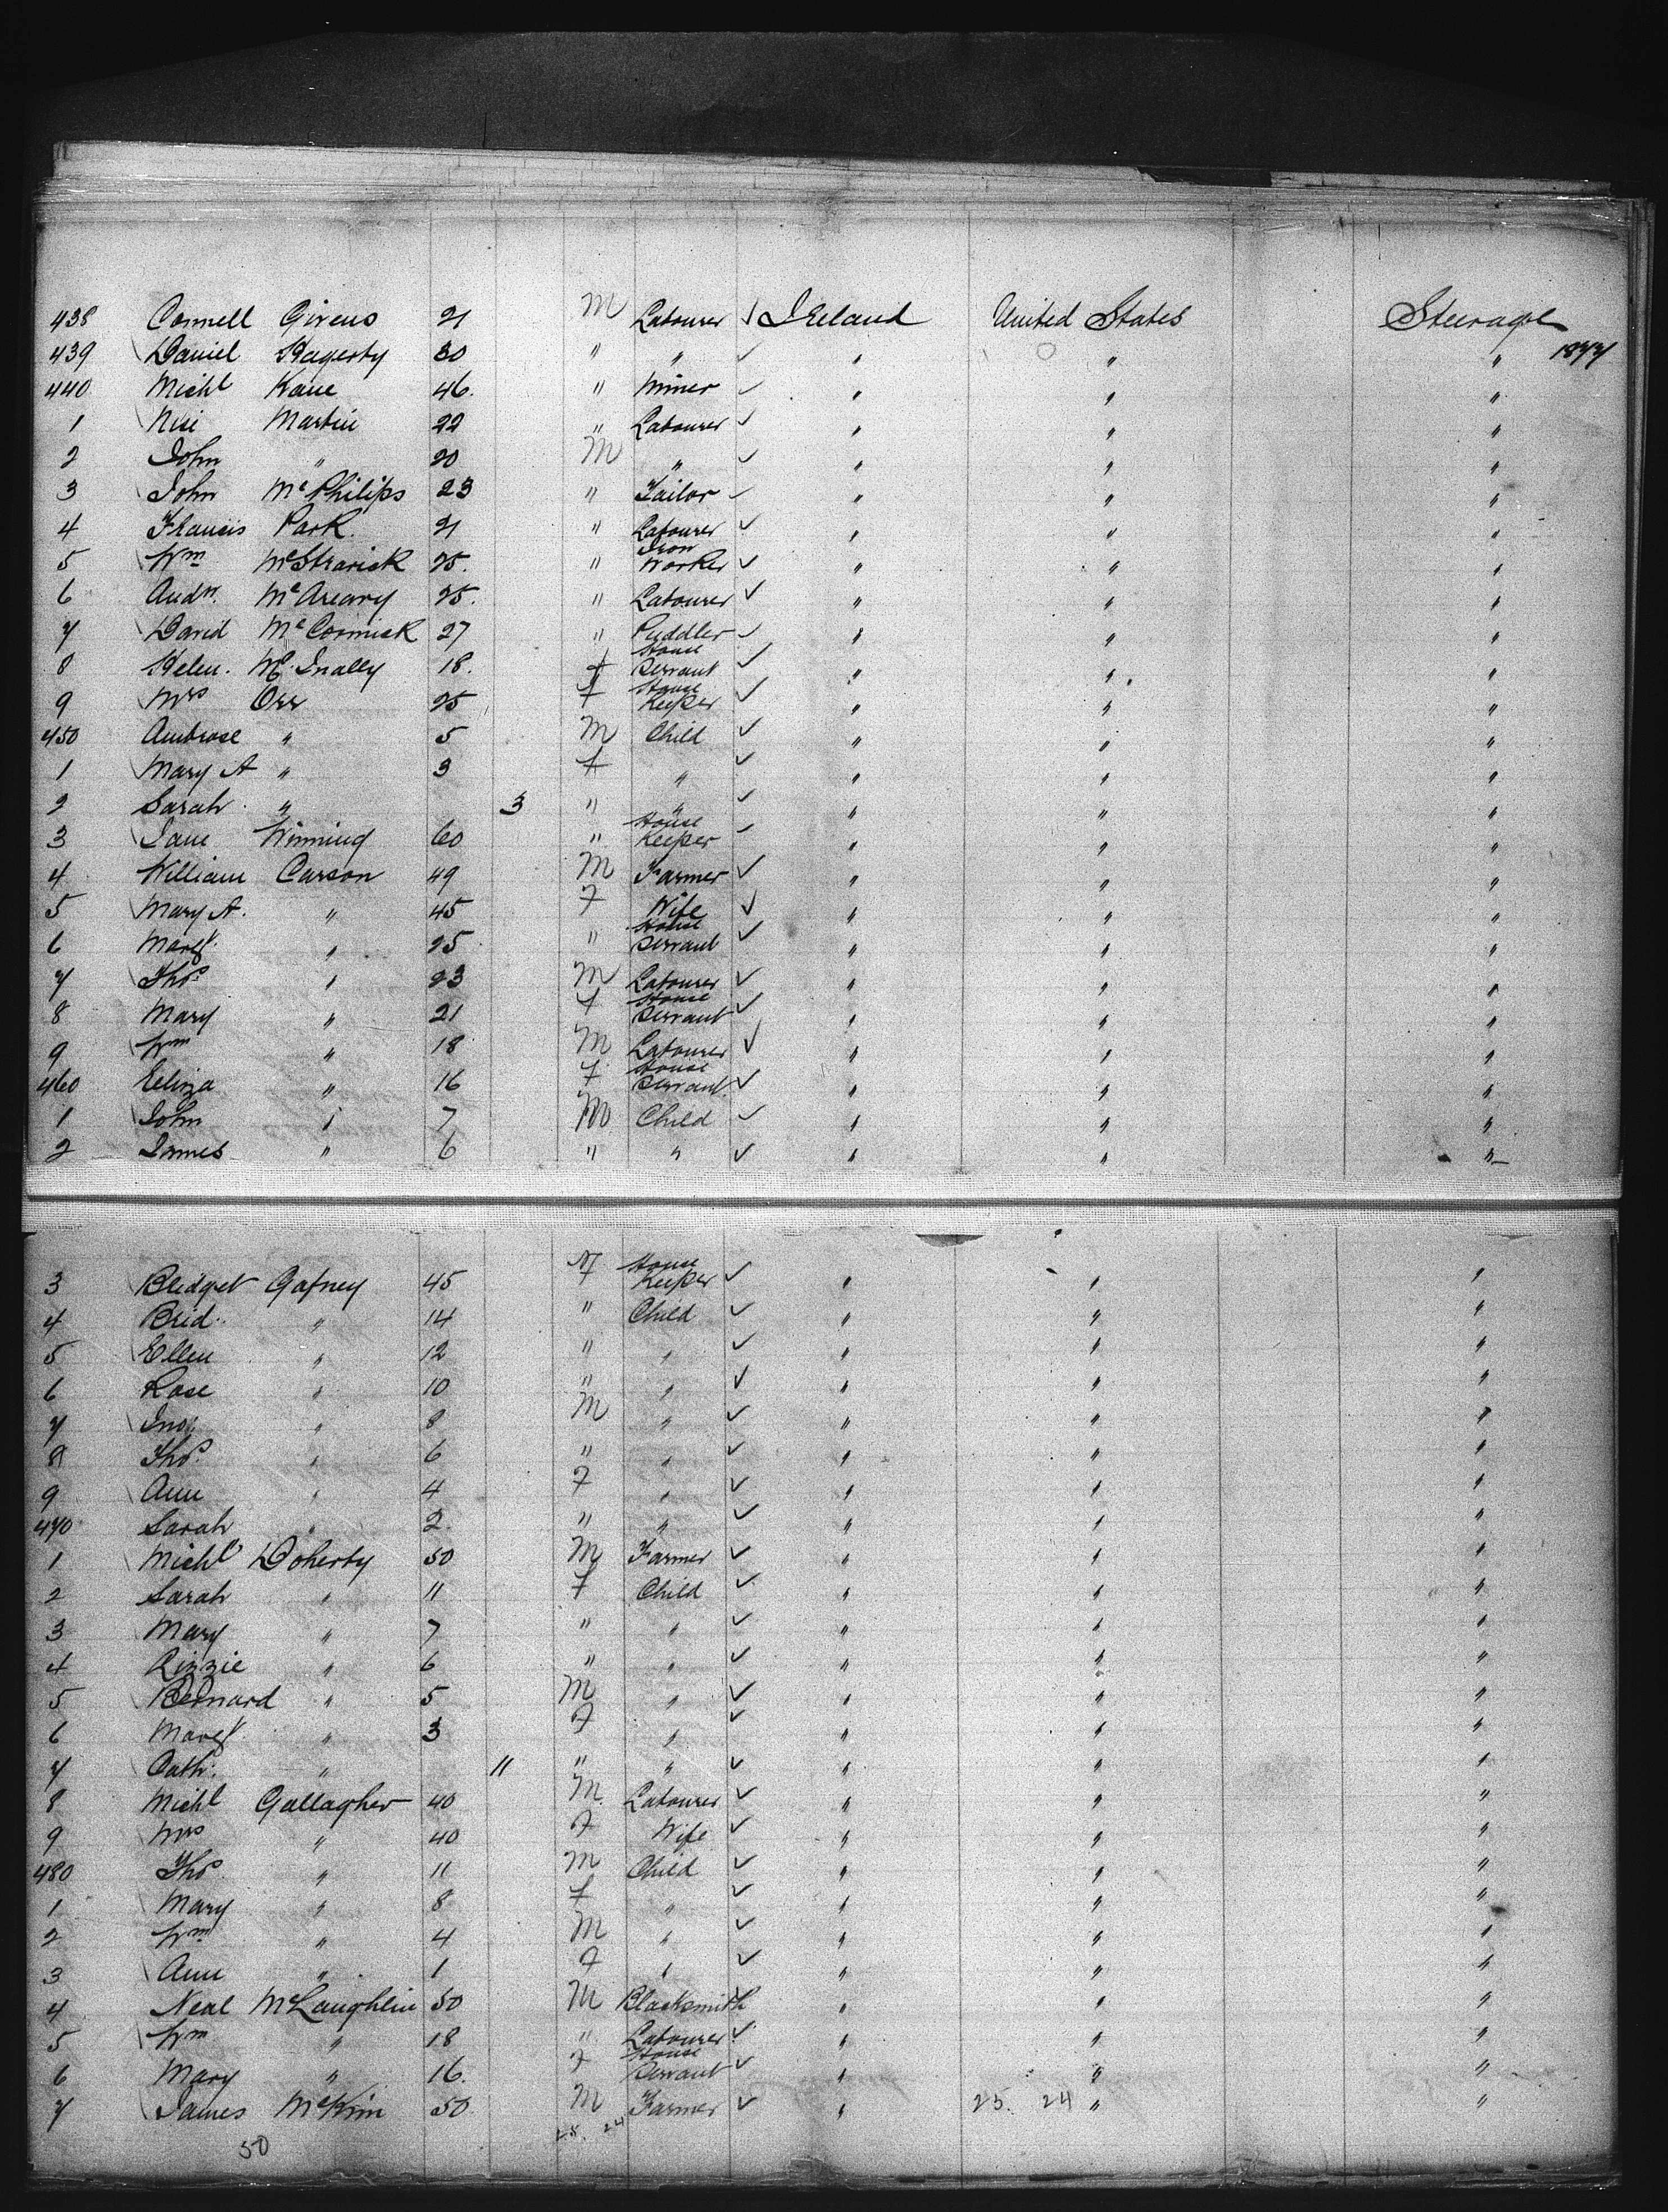 438 Connell Givens 21 M Labourer ✓ Ireland United States Steerage
439 Daniel Hagerty 30 " " ✓ " " " 1877
440 Michl Kane 46. " Miner ✓ " " "
1 Martin 22 " Labourer ✓ " " "
2 John " 20 M " ✓ " " "
3 John McPhilips 23 " Tailor ✓ " " "
4 Francis Park. 21 " Labourer ✓ " " "
5 Wm 25. " Iron Worker ✓ " " "
6 Andw. McAreavy 25. " Labourer ✓ " " "
7 David McCormick 27 " Puddler ✓ " " "
8 Helen. McInally 18. f House Servant ✓ " " "
9 Mrs Orr 25 f House Keeper ✓ " " "
450 Ambrose " 5 M Child ✓ " " "
1 Mary A " 3 f " ✓ " " "
2 Sarah. " 3 " " ✓ " " "
3 Jane Winning 60 " House Keeper ✓ " " "
4 William Carson 49 M Farmer ✓ " " "
5 Mary A. " 45 F Wife ✓ " " "
6 Margt. " 25 " House Servant ✓ " " "
7 Thos. " 23 M Labourer ✓ " " "
8 Mary " 21 f House Servant ✓ " " "
9 Wm " 18 M Labourer ✓ " " "
460 Eliza " 16 f House Servant ✓ " " "
1 John " 7 M Child ✓ " " "
2 James " 6 " " ✓ " " "
3 Bridget Gafney 45 F House Keeper ✓ " " "
4 Brid. " 14 " Child ✓ " " "
5 Ellen " 12 " " ✓ " " "
6 Rose " 10 " " ✓ " " "
7 Jno. " 8 M " ✓ " " "
8 Thos. " 6 " " ✓ " " "
9 Ann " 4 F " ✓ " " "
470 Sarah " 2. " " ✓ " " "
1 Michl Doherty 50 M Farmer ✓ " " "
2 Sarah " 11 f Child ✓ " " "
3 Mary " 7 " " ✓ " " "
4 Lizzie " 6 " " ✓ " " "
5 Bernard " 5 M " ✓ " " "
6 Margt. " 3 F " ✓ " " "
7 Cath. " 11 " " ✓ " " "
8 Michl Gallagher 40 M. Labourer ✓ " " "
9 Mrs " 40 F Wife ✓ " " "
480 Thos " 11 M Child ✓ " " "
1 Mary " 8 f " ✓ " " "
2 Wm " 4 M " ✓ " " "
3 Ann " 1 F " ✓ " " "
4 Neal McLaughlin 50 M Blacksmith " " "
5 Wm " 18 " Labourer ✓ " " "
6 Mary " 16. F House Servant ✓ " " "
7 James McKim 50 M Farmer ✓ " 25. 24 " "
50 25. 24